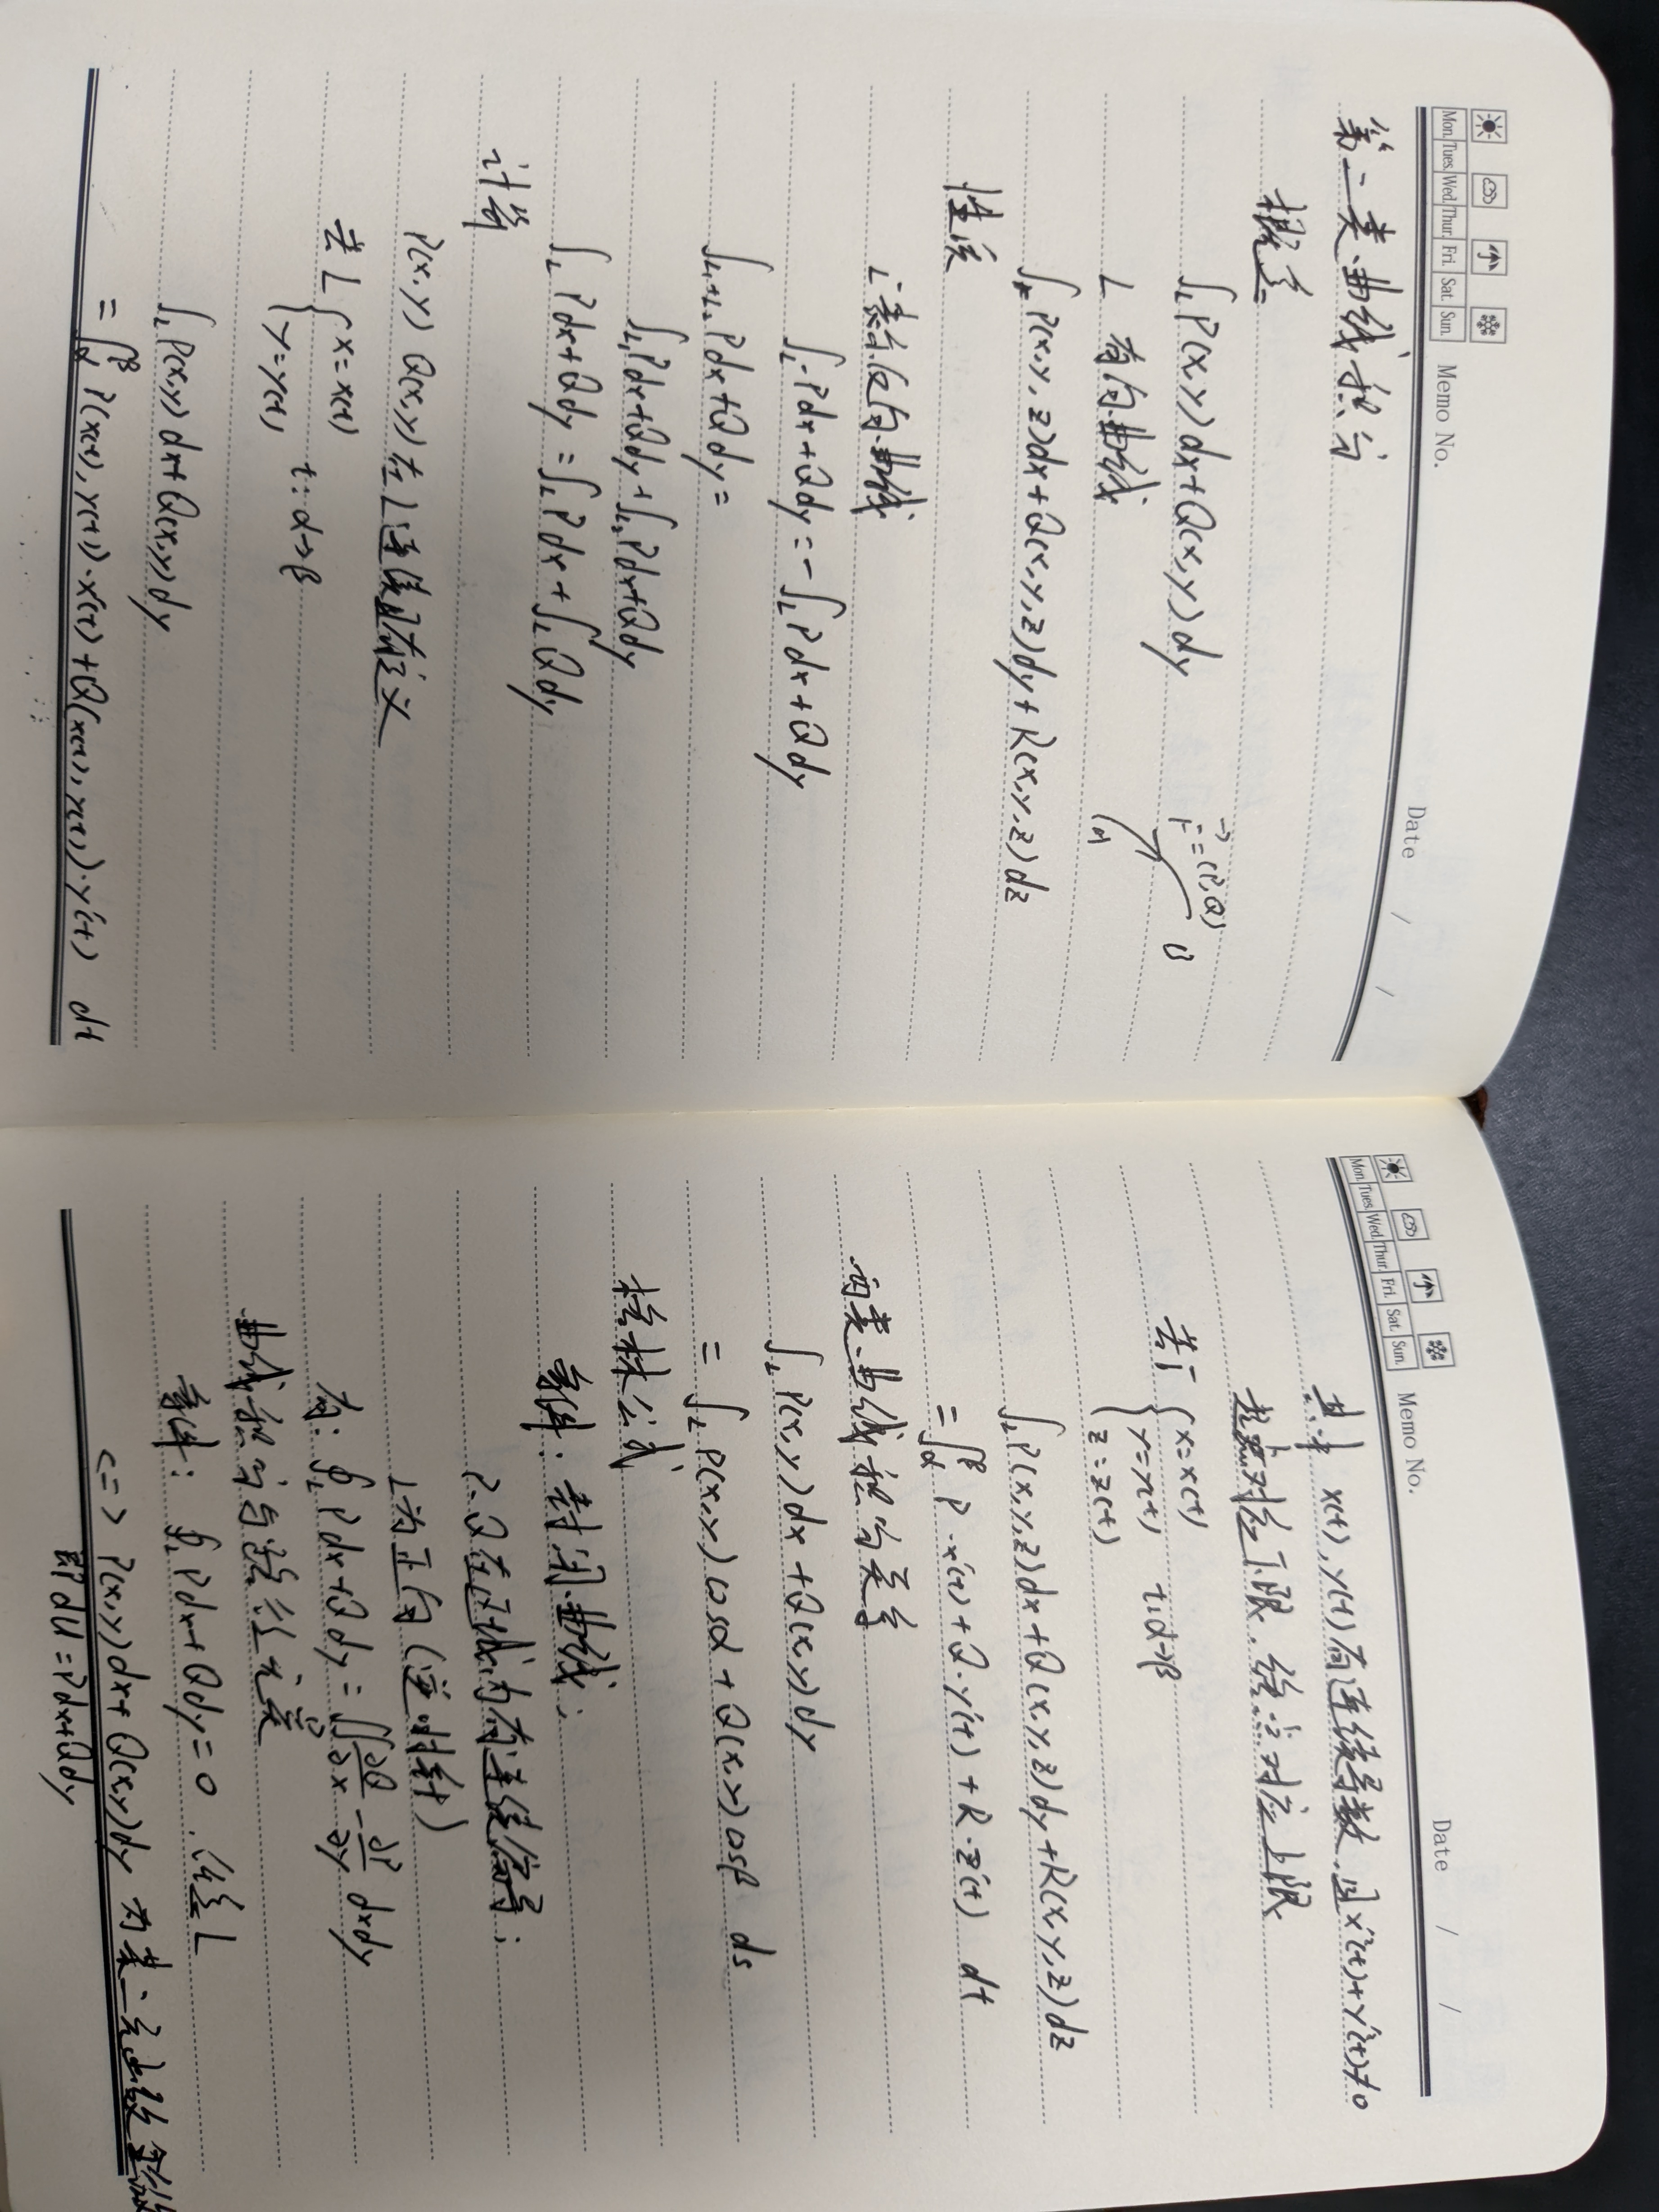 Mon. Tues. Wed. Thur. Fri. Sat. Sun.
Memo No.
Date / /
第二类曲线积分
概念
∫_L P(x,y)dx+Q(x,y)dy
F⃗=(P,Q)
L 有向曲线
∫_Γ P(x,y,z)dx+Q(x,y,z)dy+R(x,y,z)dz
性质
L⁻表示反向曲线
∫_L⁻ Pdx+Qdy=-∫_L Pdx+Qdy
∫_L₁+L₂ Pdx+Qdy=
∫_L₁ Pdx+Qdy+∫_L₂ Pdx+Qdy
∫_L Pdx+Qdy=∫_L Pdx+∫_L Qdy
计算
P(x,y) Q(x,y)在L连续有定义
若L { x=x(t)
y=y(t), t:α→β
∫_L P(x,y)dx+Q(x,y)dy
=∫_α^β P(x(t),y(t))·x'(t)+Q(x(t),y(t))·y'(t) dt
Mon. Tues. Wed. Thur. Fri. Sat. Sun.
Memo No.
Date / /
其中 x(t),y(t)有连续导数,且x'(t)+y'(t)≠0
起点对应下限,终点对应上限
若Γ { x=x(t)
y=y(t) t:α→β
z=z(t)
∫_L P(x,y,z)dx+Q(x,y,z)dy+R(x,y,z)dz
=∫_α^β P·x'(t)+Q·y'(t)+R·z'(t) dt
两类曲线积分关系
∫_L P(x,y)dx+Q(x,y)dy
=∫_L P(x,y)cosα+Q(x,y)cosβ ds
格林公式
条件:封闭曲线;
P、Q在区域内有连续偏导;
L为正向(逆时针)
有:∮_L Pdx+Qdy=∬ ∂Q/∂x-∂P/∂y dxdy
曲线积分与路径无关
条件:∮_L Pdx+Qdy=0,任意L
<=> P(x,y)dx+Q(x,y)dy 为某二元函数全微分
即dU=Pdx+Qdy